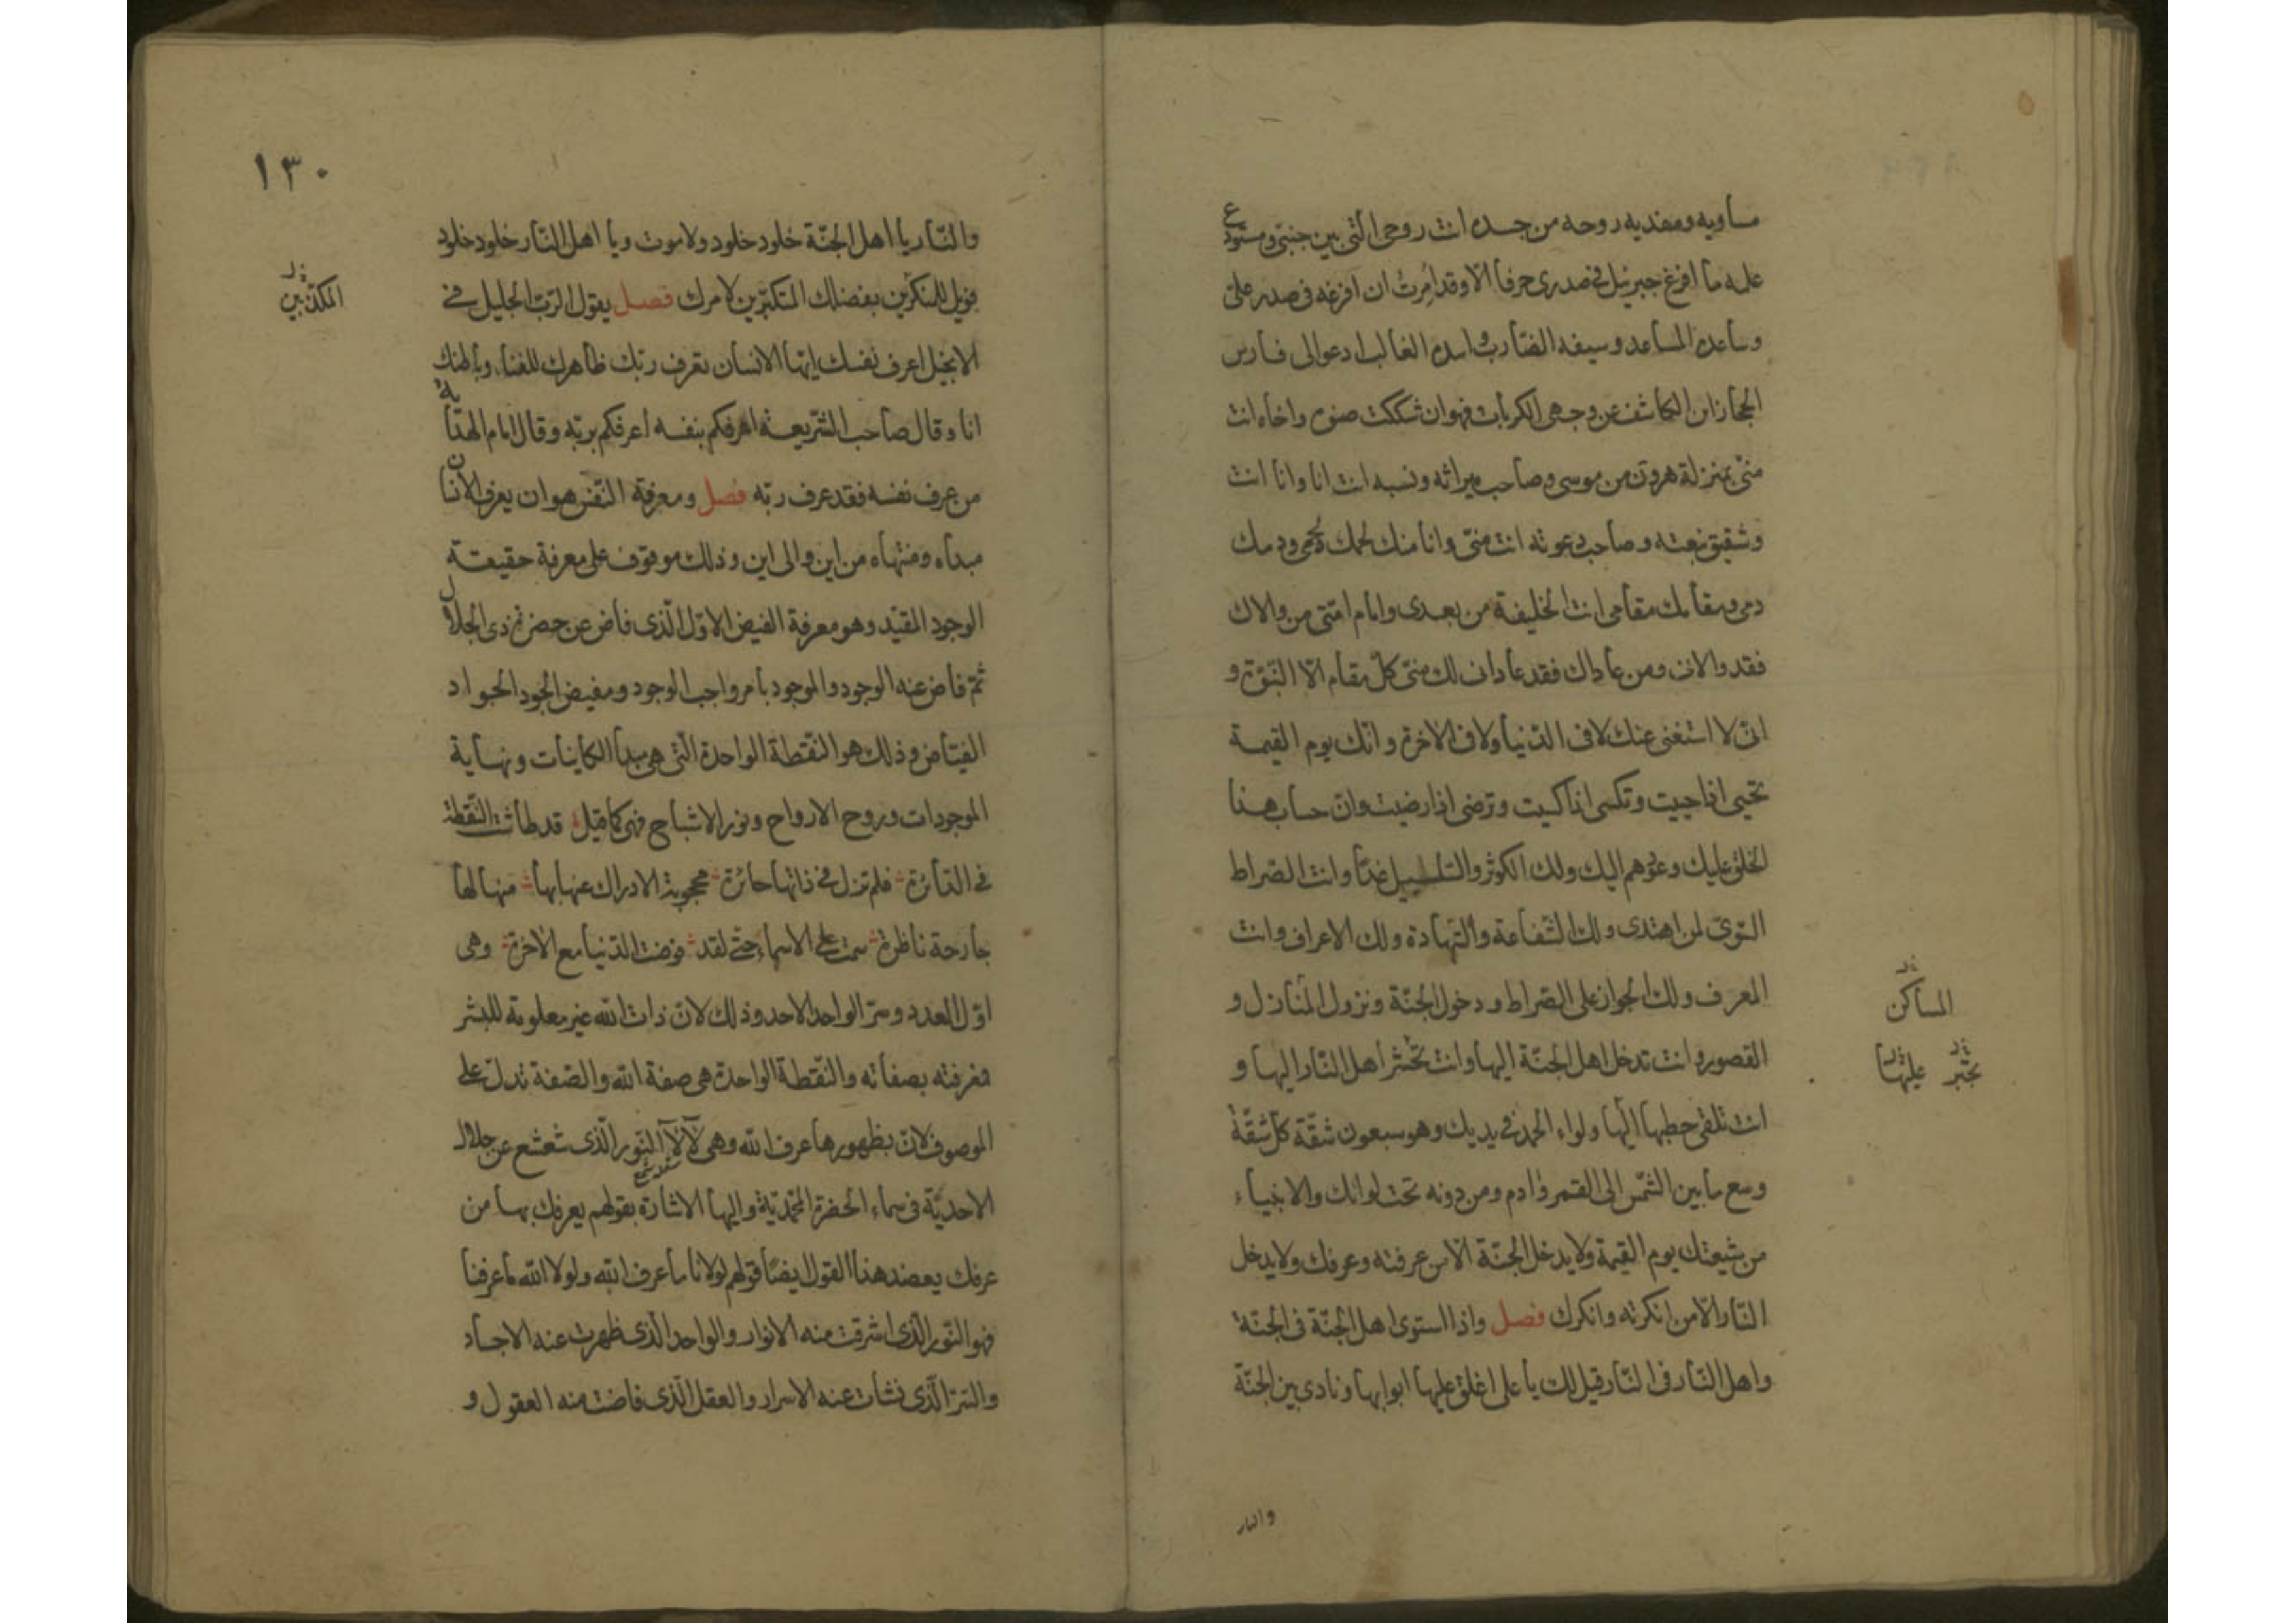 مساويه ومفديه بروحه من جسده انت روحى التى بين جنبتى ومستودع
علمه ما افرغ جبرئيل فى صدرى حرفا الا وقد امرت ان افرغه فى صدر على
وساعده المساعد وسيفه الضارب واسده الغالب ادعوا لى فارس
الحجاز ابن الكاشف عن وجهى الكربات فهو ان شككت صنوه واخاه انت
منى بمنزلة هرون من موسى وصاحب ميراثه ونسبه انت انا وانا انت
وشقيق نبعته وصاحب دعوته انت منى وانا منك لحمك لحمى ودمك
دمى ومقامك مقامى انت الخليفة من بعدى وامام امتى من والاك
فقد والانى ومن عاداك فقد عادانى لك منى كل مقام الا النبوة و
انى لا استغنى عنك لا فى الدنيا ولا فى الاخرة وانك يوم القيمة
تحيى اذا حييت وتكسى اذا كسيت وترضى اذا رضيت وان حساب هذا
الخلق عليك وعودهم اليك ولك الكوثر والسلسبيل غدا وانت الصراط
السوى لمن اهتدى ولك الشفاعة والشهادة ولك الاعراف وانت
المعرف ولك الجواز على الصراط ودخول الجنة ونزول المنازل و
المساكن
القصور وانت تدخل اهل الجنة اليها وانت تحشر اهل النار اليها و
انت تلقى حطبها اليها ولواء الحمد فى يديك وهو سبعون شقة كل شقة
وسع ما بين الشمس الى القمر وادم ومن دونه تحت لوائك والانبياء
من شيعتك يوم القيمة ولا يدخل الجنة الا من عرفته وعرفك ولا يدخل
النار الا من انكرته وانكرك فصل واذا استوى اهل الجنة فى الجنة
واهل النار فى النار قيل لك يا على اغلق عليها ابوابها ونادى بين الجنة
والنار
١٣٠
والنار يا اهل الجنة خلود خلود ولا موت ويا اهل النار خلود خلود
فويل للمنكرين بفضلك المتكبرين لامرك فصل يقول الرب الجليل فى
المكذبين
الانجيل اعرف نفسك ايها الانسان تعرف ربك ظاهرك للفناء وباطنك
انا وقال صاحب الشريعة اعرفكم بنفسه اعرفكم بربه وقال امام الهداية
من عرف نفسه فقد عرف ربه فصل ومعرفة النفس هو ان يعرف الانسان
مبداه ومنتهاه من اين والى اين وذلك موقوف على معرفة حقيقة
الوجود المقيد وهو معرفة الفيض الاول الذى فاض عن حضرة ذى الجلال
ثم فاض عنه الوجود والموجود بامر واجب الوجود ومفيض الجود الجواد
الفياض وذلك هو النقطة الواحدة التى هى مبدأ الكاينات ونهاية
الموجودات وروح الارواح ونور الاشباح فهى كما قيل قد طاشت النقطة
فى الدائرة فلم تزل فى ذاتها حائرة محجوبة الادراك عنها بها منها لها
جارحة ناظرة سمت على الاسماء حتى لقد فوضت الدنيا مع الاخرة وهى
اول العدد وسر الواحد الاحد وذلك لان ذات الله غير معلومة للبشر
فمعرفته بصفاته والنقطة الواحدة هى صفة الله والصفة تدل على
الموصوف لان بظهورها عرف الله وهى لآلآ النور الذى شعشع عن جلال
الاحدية فى سماء الحضرة المحمدية واليها الاشارة بقولهم يعرفك بها من
عرفك يعضد هذا القول ايضا قولهم لولانا ما عرف الله ولولا الله ما عرفنا
فهو النور الذى اشرقت منه الانوار والواحد الذى ظهرت عنه الاجساد
والسر الذى نشات عنه الاسرار والعقل الذى فاضت منه العقول و